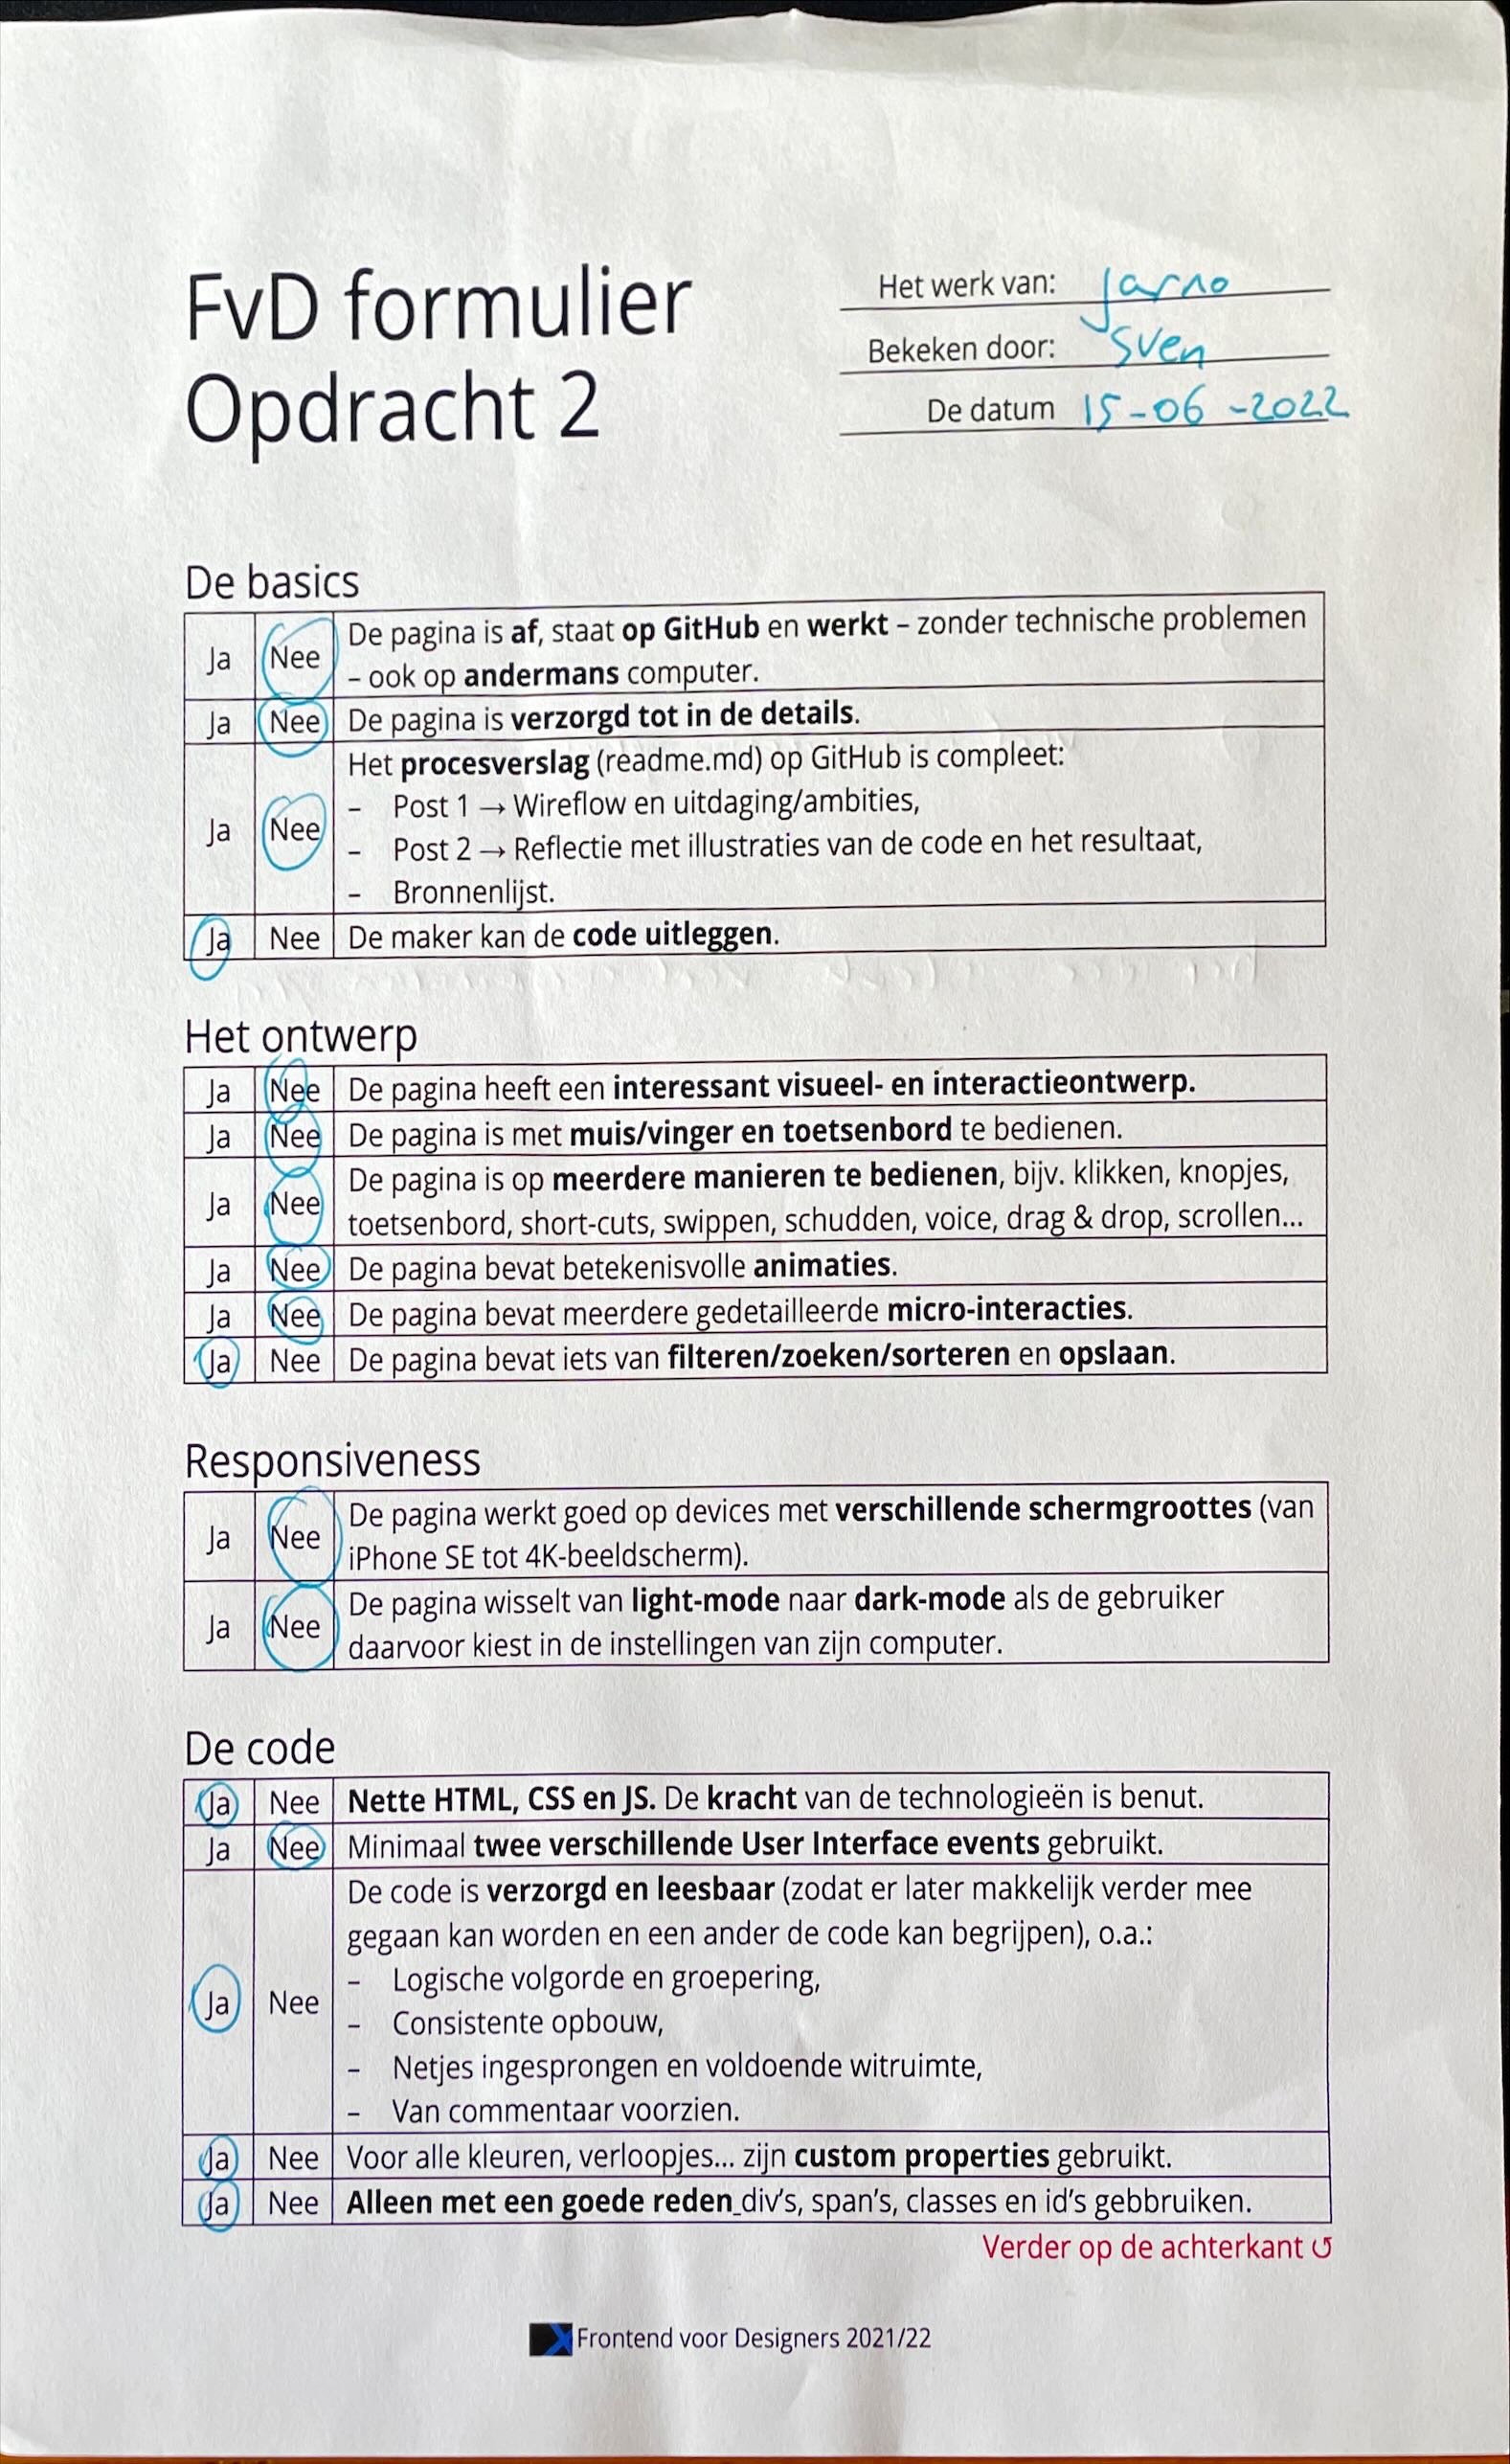 FvD formulier
Opdracht 2
Het werk van: Jarno
Bekeken door: Sven
De datum 15-06-2022
De basics
Ja Nee De pagina is af, staat op GitHub en werkt – zonder technische problemen
– ook op andermans computer.
Ja Nee De pagina is verzorgd tot in de details.
Het procesverslag (readme.md) op GitHub is compleet:
– Post 1 → Wireflow en uitdaging/ambities,
Ja Nee
– Post 2 → Reflectie met illustraties van de code en het resultaat,
– Bronnenlijst.
Ja Nee De maker kan de code uitleggen.
Het ontwerp
Ja Nee De pagina heeft een interessant visueel- en interactieontwerp.
Ja Nee De pagina is met muis/vinger en toetsenbord te bedienen.
Ja Nee De pagina is op meerdere manieren te bedienen, bijv. klikken, knopjes,
toetsenbord, short-cuts, swippen, schudden, voice, drag & drop, scrollen...
Ja Nee De pagina bevat betekenisvolle animaties.
Ja Nee De pagina bevat meerdere gedetailleerde micro-interacties.
Ja Nee De pagina bevat iets van filteren/zoeken/sorteren en opslaan.
Responsiveness
Ja Nee De pagina werkt goed op devices met verschillende schermgroottes (van
iPhone SE tot 4K-beeldscherm).
Ja Nee De pagina wisselt van light-mode naar dark-mode als de gebruiker
daarvoor kiest in de instellingen van zijn computer.
De code
Ja Nee Nette HTML, CSS en JS. De kracht van de technologieën is benut.
Ja Nee Minimaal twee verschillende User Interface events gebruikt.
De code is verzorgd en leesbaar (zodat er later makkelijk verder mee
gegaan kan worden en een ander de code kan begrijpen), o.a.:
– Logische volgorde en groepering,
Ja Nee
– Consistente opbouw,
– Netjes ingesprongen en voldoende witruimte,
– Van commentaar voorzien.
Ja Nee Voor alle kleuren, verloopjes... zijn custom properties gebruikt.
Ja Nee Alleen met een goede reden div's, span's, classes en id's gebbruiken.
Verder op de achterkant ↺
Frontend voor Designers 2021/22